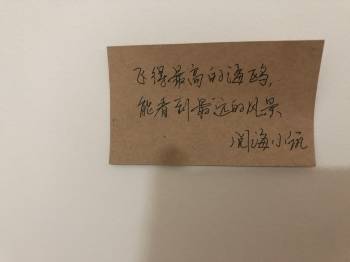 飞得最高的海鸥，
能看到最远的风景
阅海小筑